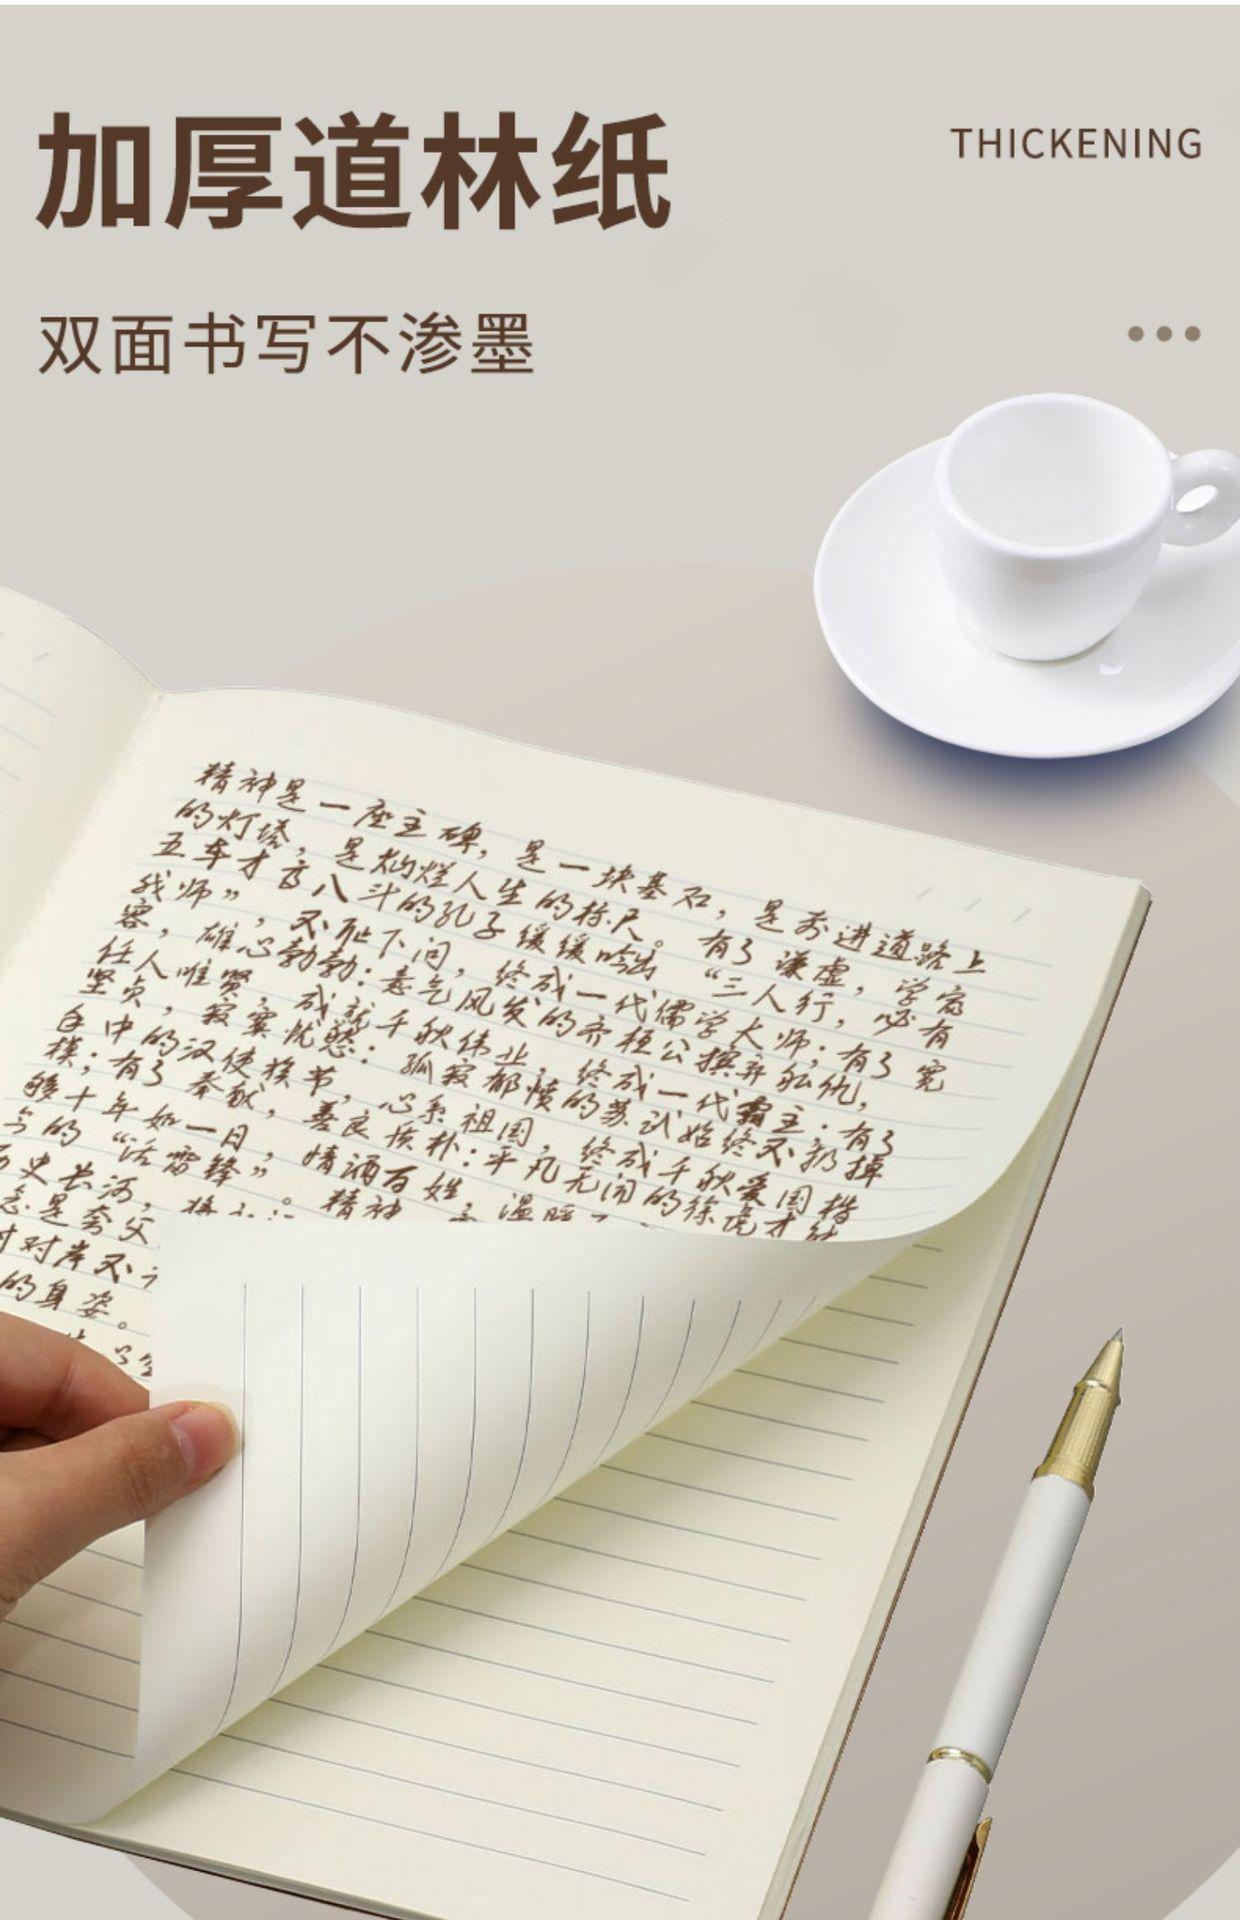 加厚道林纸
THICKENING
双面书写不渗墨
精神是一座主碑，是一块基石，是前进道路上
的灯塔，是灿烂人生的标尺。有了谦虚，学富
五车才高八斗的孔子缓缓吟出“三人行，必有
我师”，不耻下问，终成一代儒学大师；有了宽
容，雄心勃勃：意气风发的齐桓公摈弃私仇，
任人唯贤，成就千秋伟业，终成一代霸主．有了
坚贞，寂寞忧愁：孤寂郁愤的苏武始终不扔掉
手中的汉使旌节，心系祖国，终成千秋爱国楷
模；有了奉献，善良质朴：平凡无闻的徐虎才能
够十年如一日，情洒百姓，温暖
今的“活雷锋”。精神
历史长河，
总是夸父
对岸又
的身姿。